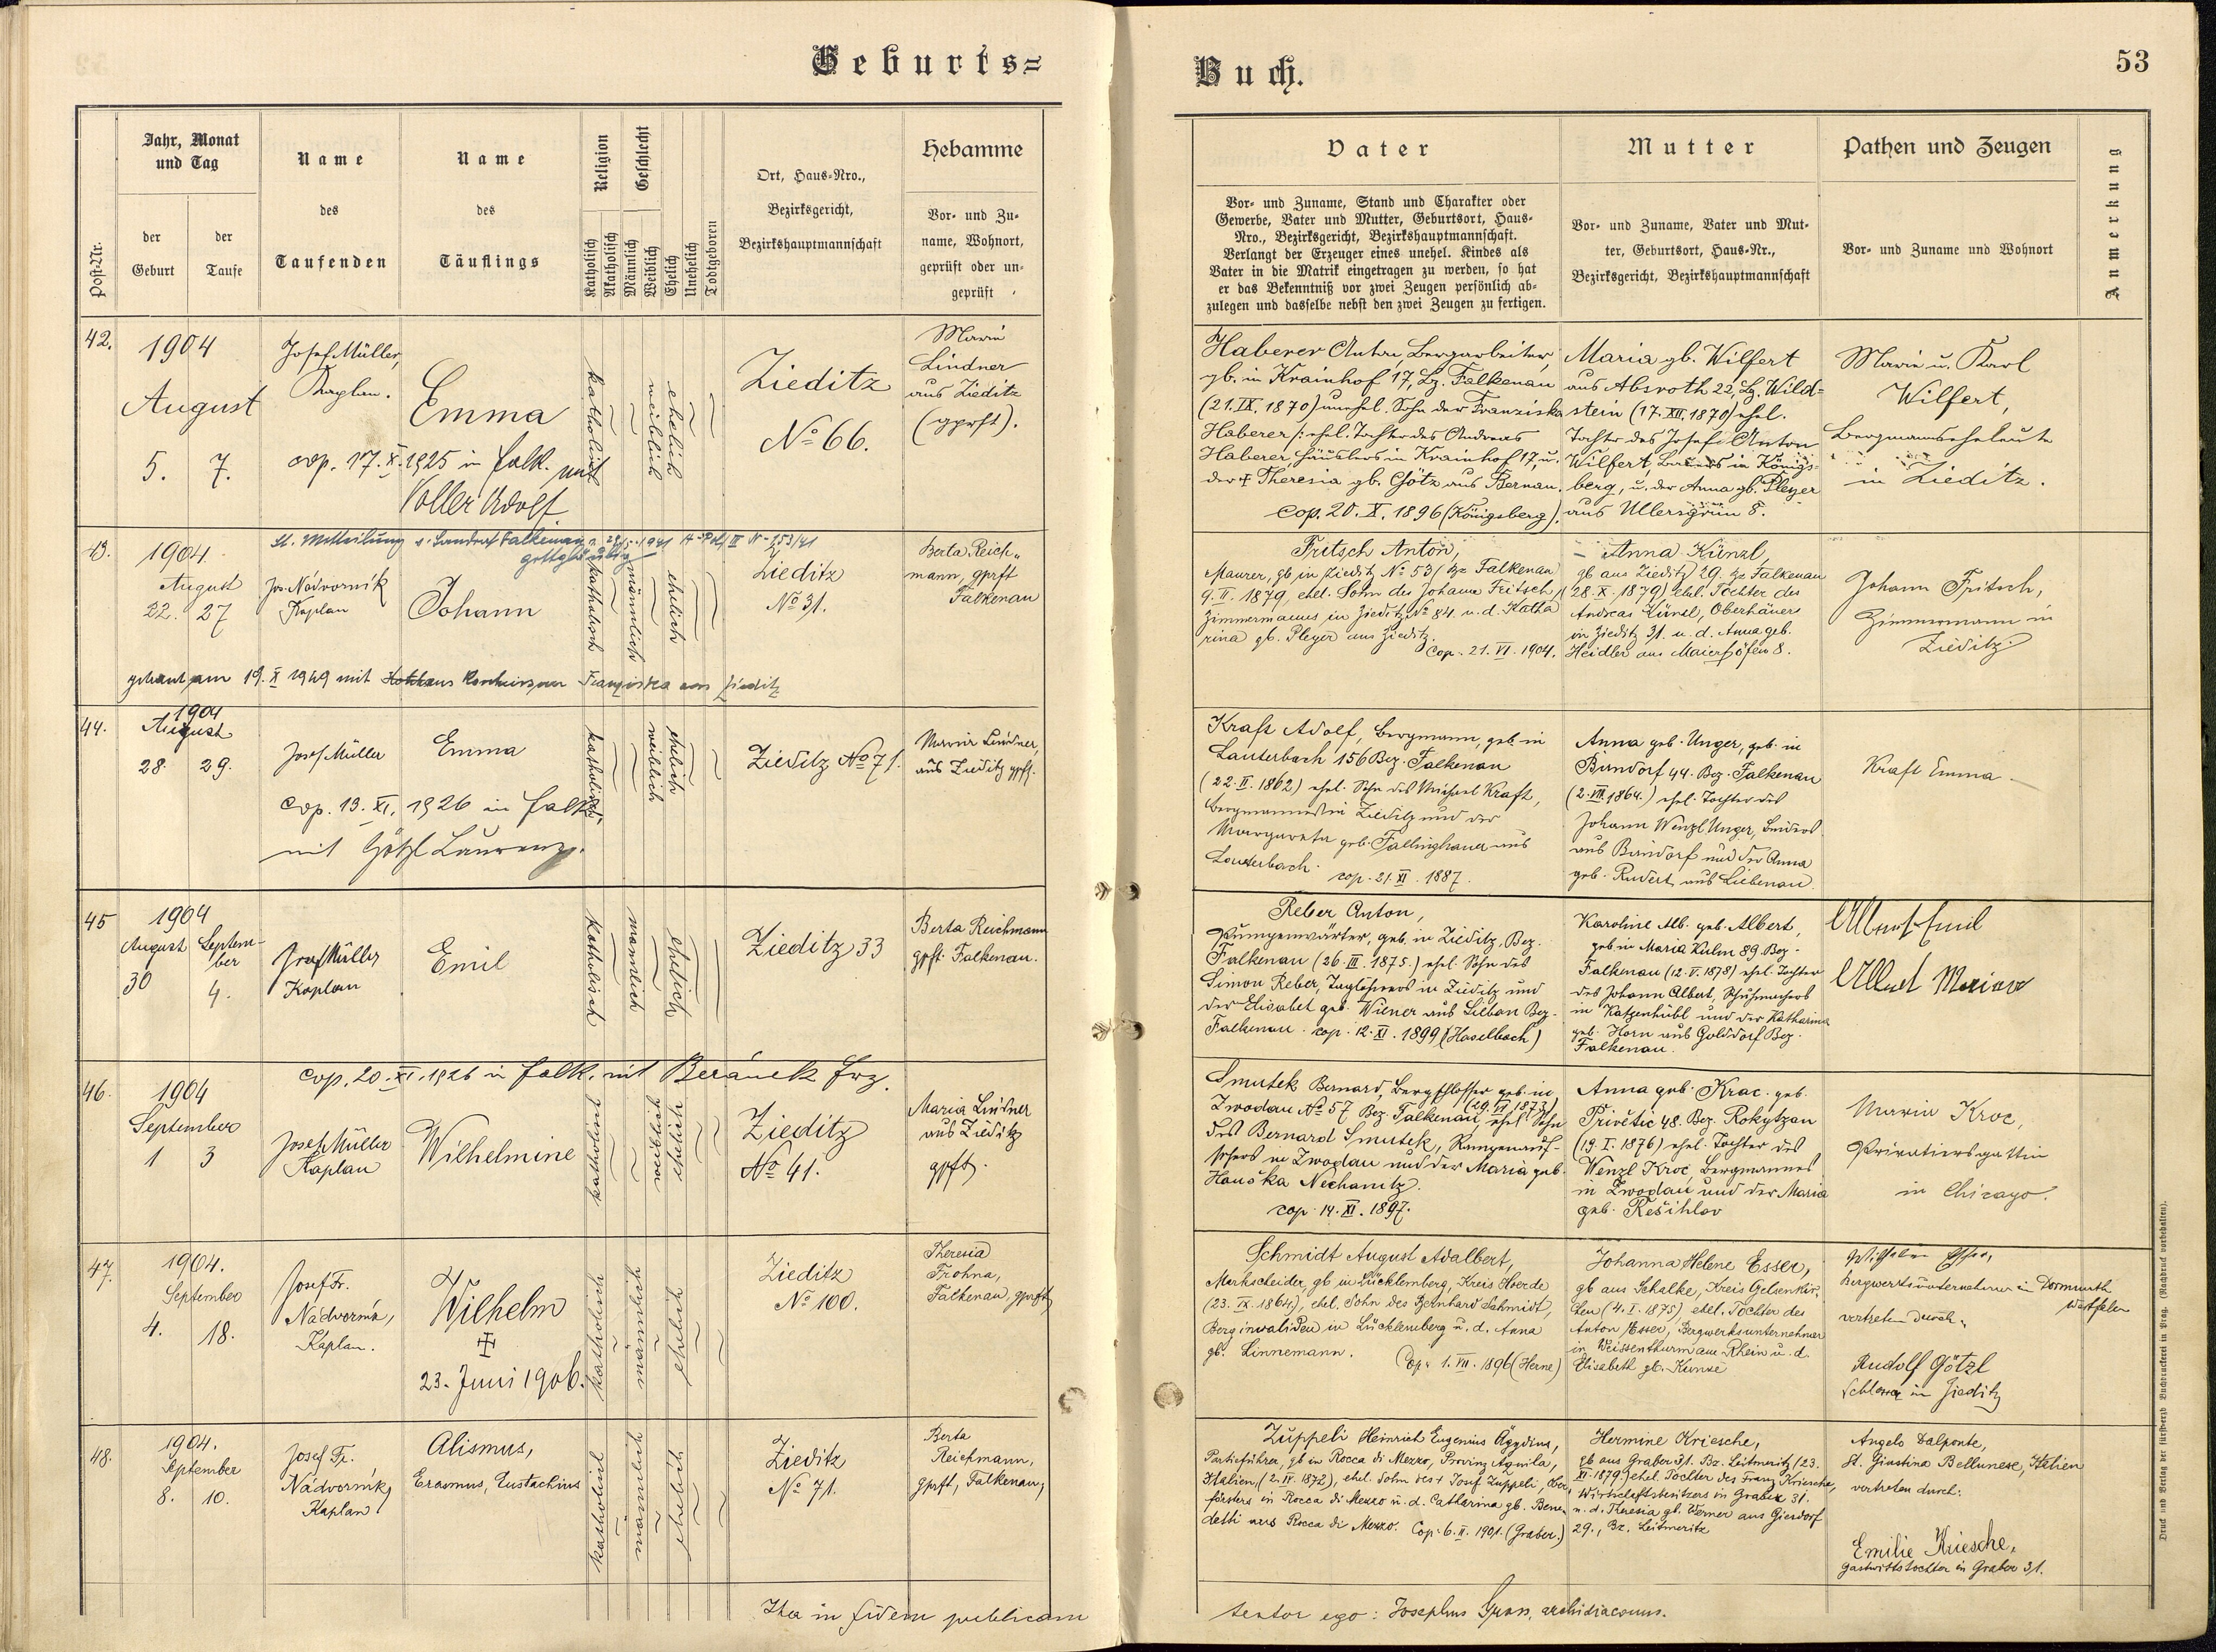 Geburts=
Buch.
53
Post-Nr.
Jahr, Monat
und Tag
der
Geburt
der
Taufe
Name
des
Taufenden
Name
des
Täuflings
Religion
Katholisch
Akatholisch
Geschlecht
Männlich
Weiblich
Ehelich
Unehelich
Todtgeboren
Ort, Haus-Nro.,
Bezirksgericht,
Bezirkshauptmannschaft
Hebamme
Vor- und Zu-
name, Wohnort,
geprüft oder un-
geprüft
Vater
Vor- und Zuname, Stand und Charakter oder
Gewerbe, Vater und Mutter, Geburtsort, Haus-
Nro., Bezirksgericht, Bezirkshauptmannschaft.
Verlangt der Erzeuger eines unehel. Kindes als
Vater in die Matrik eingetragen zu werden, so hat
er das Bekenntniß vor zwei Zeugen persönlich ab-
zulegen und dasselbe nebst den zwei Zeugen zu fertigen.
Mutter
Vor- und Zuname, Vater und Mut-
ter, Geburtsort, Haus-Nr.,
Bezirksgericht, Bezirkshauptmannschaft
Pathen und Zeugen
Vor- und Zuname und Wohnort
Anmerkung
42.
1904
August
5. 7.
Josef Müller,
Kaplan.
Emma
cop. 17. X. 1925 in Falk. mit
Voller Adolf
katholisch
weiblich
ehelich
Zieditz
No 66.
Marie
Lindner
aus Zieditz
(gprft).
Haberer Anton, Bergarbeiter,
gb. in Krainhof 17, Bz. Falkenau
(21. IX. 1870) unehel. Sohn der Franziska
Haberer /: ehel. Tochter des Andreas
Haberer, Häuslers in Krainhof 17, u.
der † Theresia gb. Götz aus Bernau.
Cop. 20. X. 1896 (Königsberg).
Maria gb. Wilfert
aus Absroth 22, Bz. Wild=
stein (17. XII. 1870) ehel.
Tochter des Josef Anton
Wilfert, in Königs-
berg, u. der Anna gb. Pleyer
aus Ullersgrün 8.
Marie u. Karl
Wilfert,
Bergmannseheleute
in Zieditz.
43.
1904
August
22. 27
lt. Mitteilung Landrat Falkenau 1941
gottgläubig
Jos. Nádvorník
Kaplan
Johann
katholisch
männlich
ehelich
Zieditz
No 31.
Berta Reich-
mann, gprft
Falkenau
getraut am 19. X 1949 mit Franziska aus Zieditz
Fritsch Anton,
Maurer, gb in Zieditz No 53/ Bz Falkenau
9. II. 1879, ehel. Sohn des Johann Fritsch,
Zimmermanns in Zieditz No 84 u. d. Katha
rina gb. Pleyer aus Zieditz.
Cop. 21. VI. 1904.
Anna Künzl,
gb aus Zieditz 29. Bz Falkenau
(28. X. 1879) ehel. Tochter des
Andreas Künzl, Oberhäuers
in Zieditz 31. u. d. Anna geb.
Heidler aus Maierhöfen 8.
Johann Fritsch,
Zimmermann in
Zieditz
44.
1904
August
28. 29.
Josef Müller
Emma
cop. 13. XI. 1926 in Falk.
mit Götzl Laurenz.
katholisch
weiblich
ehelich
Zieditz No 71.
Maria Lindner,
aus Zieditz gpft.
Kraft Adolf, Bergmann, geb. in
Lauterbach 156 Bez. Falkenau
(22. II. 1862) ehel. Sohn des Michael Kraft,
Bergmannes in Zieditz und der
Margareta geb. Fallinghauer aus
Lauterbach. cop. 21. XI. 1887.
Anna geb. Unger, geb. in
Birndorf 44. Bez. Falkenau
(2. VII. 1864.) ehel. Tochter des
Johann Wenzl Unger,
aus Birndorf und der Anna
geb. Rudert aus Liebenau.
Kraft Emma
45
1904
August Septem-
ber
30 4.
Josef Müller
Kaplan
Emil
katholisch
männlich
ehelich
Zieditz 33
Berta Reichmann
gpft. Falkenau.
Reber Anton,
Pumpenwärter, geb. in Zieditz, Bez.
Falkenau (26. III. 1875.) ehel. Sohn des
Simon Reber, Taglöhners in Zieditz und
der Elisabet geb. Wiener aus Liebau Bez.
Falkenau. cop. 12. XI. 1899 (Haselbach)
Karoline Alb. geb. Albert,
geb in Maria Kulm 89. Bez.
Falkenau (12. V. 1878) ehel. Tochter
des Johann Albert, Schuhmachers
in Katzenhübl und der Katharina
geb. Horn aus Golddorf Bez.
Falkenau.
Albert Emil
Albert Marie
46.
1904
September
1 3
cop. 20. XI. 1926 in Falk. mit Beránek Frz.
Josef Müller
Kaplan
Wilhelmine
katholisch
weiblich
ehelich
Zieditz
No 41.
Maria Lindner
aus Zieditz
gpft.
Smutek Bernard, Bergschlosser geb. in
Zwodau No 57 Bez. Falkenau (29. VI 1873) ehel. Sohn
des Bernard Smutek, Rampenauf-
sehers in Zwodau und der Maria geb.
Houška Nechanitz.
cop. 14. XI. 1897.
Anna geb. Krac. geb.
Přivětic 48. Bez. Rokytzan
(19. I. 1876) ehel. Tochter des
Wenzl Kroc, Bergmannes
in Zwodau und der Maria
geb. Rešihlav
Maria Kroc,
Privatiersgattin
in Chicago.
47.
1904.
September
4. 18.
Josef Fr.
Nádvorník,
Kaplan.
Wilhelm
‡
23. Juni 1906.
katholisch
männlich
ehelich
Zieditz
No 100.
Theresia
Frohna,
Falkenau, gprft
Schmidt August Adalbert,
Markscheider, gb in Lücklemberg, Kreis Hoerde
(23. IX. 1864), ehel. Sohn des Bernhard Schmidt,
Berginvaliden in Lücklemberg u. d. Anna
gb. Linnemann. Cop. 1. VII. 1896 (Herne)
Johanna Helene Esser,
gb aus Schalke, Kreis Gelsenkir-
chen (4. I. 1875), ehel. Tochter des
Anton Esser, Bergwerksunternehmer
in Weissenthurm am Rhein u. d.
Elisabeth gb. Kunze
Wilhelm Esser,
Bergwerksunternehmer in Dortmund
Westfalen
vertreten durch:
Rudolf Götzl
Schlosser in Zieditz
48.
1904.
September
8. 10.
Josef Fr.
Nádvorník,
Kaplan.
Alismus,
Erasmus, Eustachius
katholisch
männlich
ehelich
Zieditz
No 71.
Berta
Reichmann,
gprft, Falkenau,
Zuppeli Heinrich Eugenius Ägydius,
Partieführer, gb in Rocca di Mezzo, Provinz Aquila,
Italien, (2. IV. 1872), ehel. Sohn des † Josef Zuppeli, Ober
försters in Rocca di Mezzo u. d. Catharina gb. Bene
detti aus Rocca di Mezzo. Cop. 6. II. 1901. (Graber.)
Hermine Kriesche,
gb aus Graber 31. Bz. Leitmeritz (23.
XI. 1879) ehel. Tochter des Franz Kriesche,
Wirtschaftsbesitzers in Graber 31.
u. d. Theresia gb. Werner aus Giersdorf
29., Bz. Leitmeritz
Angelo Dalponte,
St. Giustina Bellunese, Italien
vertreten durch:
Emilie Kriesche,
Gastwirtstochter in Graber 31.
Ita in fidem publicam
testor ego: Josephus archidiaconus.
Druck und Verlag der fürsterzb. Buchdruckerei in Prag. (Nachdruck vorbehalten).